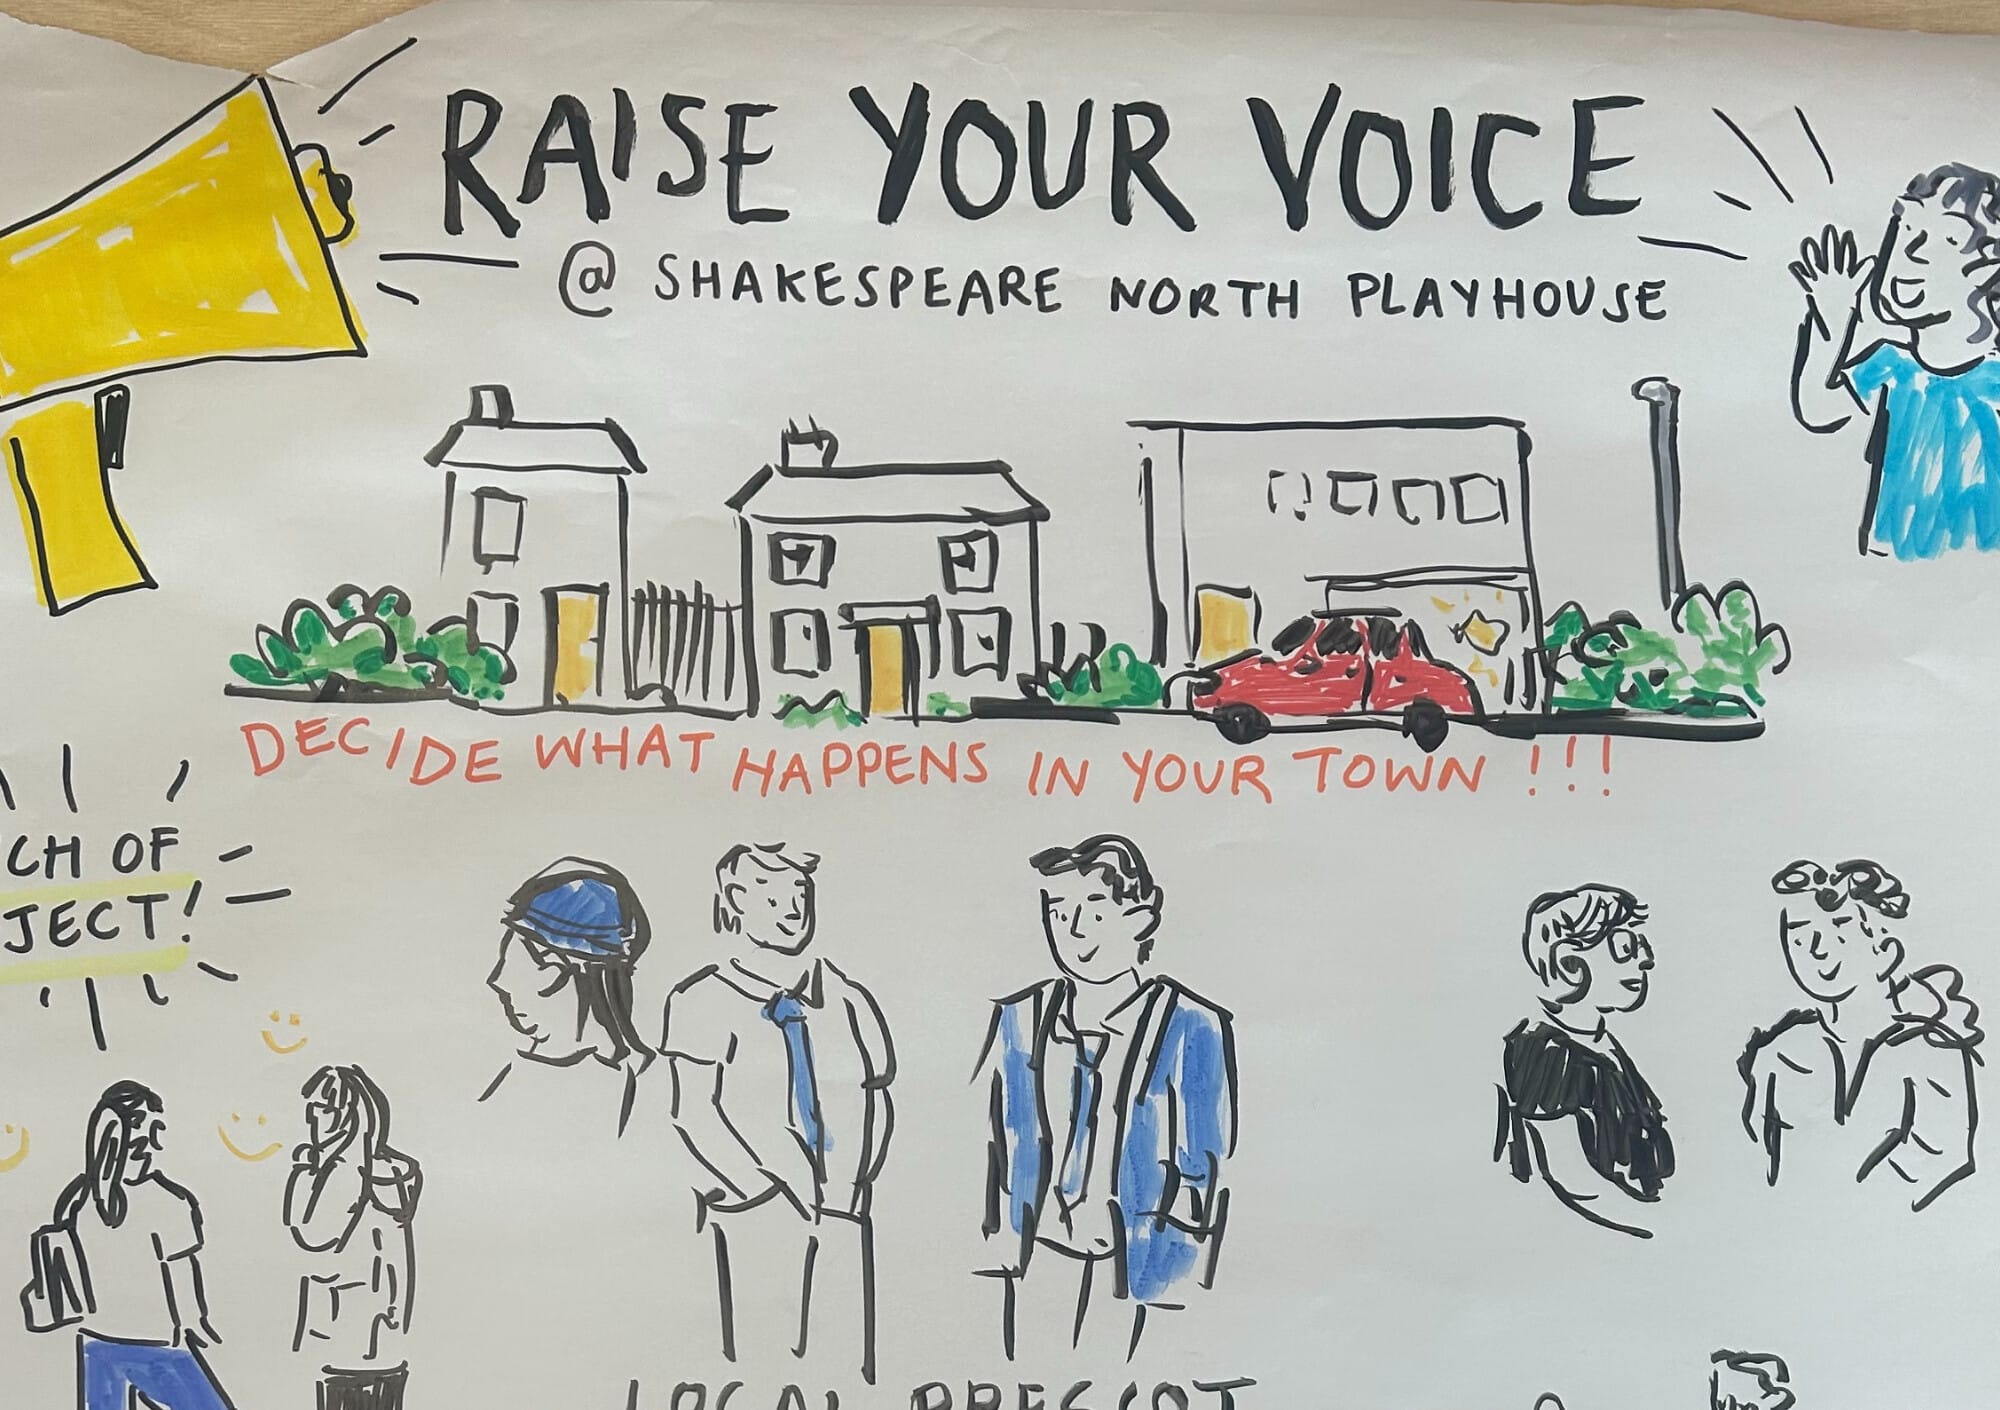 RAISE YOUR VOICE
@ SHAKESPEARE NORTH PLAYHOUSE
DECIDE WHAT HAPPENS IN YOUR TOWN !!!
CH OF
JECT!
LOCAL PRESCOT